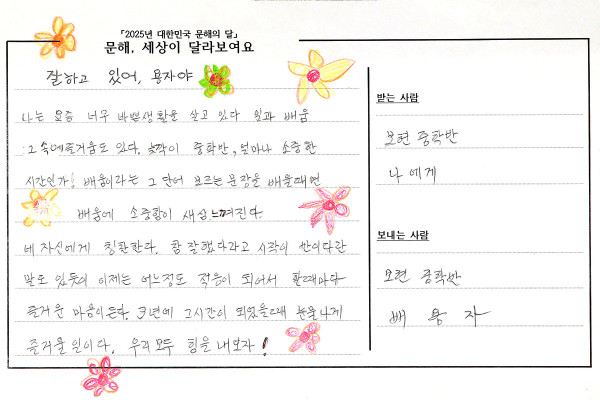 「2025년 대한민국 문해의 달」
문해, 세상이 달라보여요
잘하고 있어, 용자야
나는 요즘 너무 바쁜생활을 살고 있다 일과 배움
그 속에 즐거움도 있다. 늦깍이 중학반, 얼마나 소중한
시간인가! 배움이라는 그 단어 모르는 문장을 배울때면
배움에 소중함이 새삼느껴진다.
네 자신에게 칭찬한다. 참 잘했다라고 시작이 반이다란
말도 있듯이 이제는 어느정도 적응이 되어서 할때마다
즐거운 마음이든다. 3년에 그시간이 되었을때 눈물나게
즐거울 일이다. 우리 모두 힘을 내보자!
받는 사람
보현 중학반
나 에게
보내는 사람
보현 중학반
배 용 자